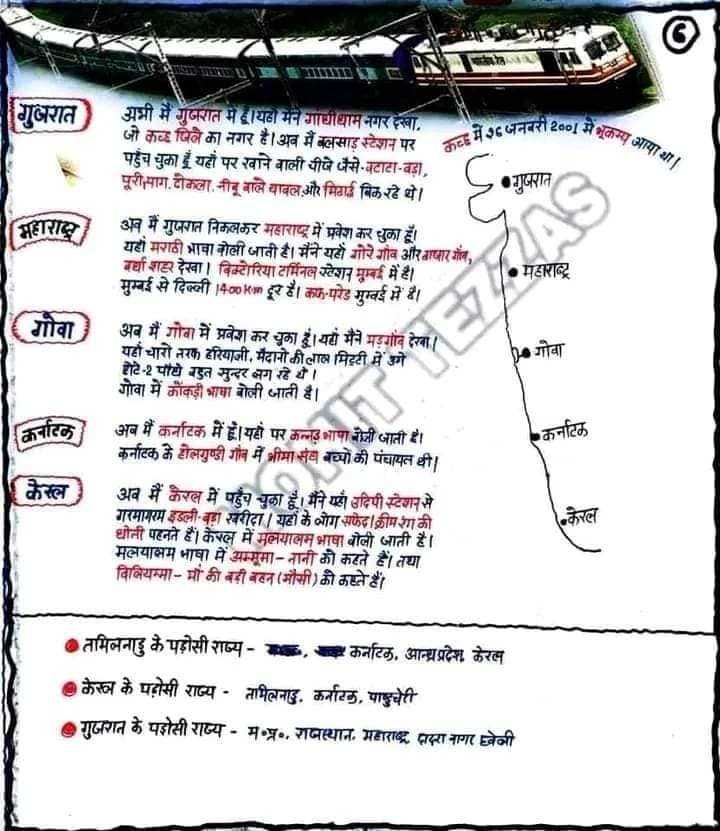 6
भारतीय रेल
गुजरात
अभी मैं गुजरात में हूँ। यहाँ मैंने गांधीधाम नगर देखा,
जो कच्छ जिले का नगर है। अब मैं वलसाड़ स्टेशन पर
पहुँच चुका हूँ यहाँ पर खाने वाली चीजें जैसे-बटाटा-वड़ा,
पूरी साग, ढोकला, नींबू वाले चावल और मिठाई बिक रहे थे।
कच्छ में 26 जनवरी 2001 में भूकम्प आया था।
गुजरात
महाराष्ट्र
अब मैं गुजरात निकलकर महाराष्ट्र में प्रवेश कर चुका हूँ।
यहाँ मराठी भाषा बोली जाती है। मैंने यहाँ गोरे गाँव और बाजार गाँव,
वर्धा शहर देखा। विक्टोरिया टर्मिनल स्टेशन मुम्बई में है।
मुम्बई से दिल्ली 1400 Km दूर है। कफ-परेड मुम्बई में है।
महाराष्ट्र
गोवा
अब मैं गोवा में प्रवेश कर चुका हूं। यहाँ मैंने मड़गाँव देखा।
यहाँ चारो तरफ हरियाली, मैदानो की लाल मिट्टी में उगे
छोटे-2 पौधे बहुत सुन्दर लग रहे थे।
गोवा में कोंकड़ी भाषा बोली जाती है।
गोवा
कर्नाटक
अब मैं कर्नाटक में हूँ। यहाँ पर कन्नड़ भाषा बोली जाती है।
कर्नाटक के होलगुण्डी गाँव में भीमा संघ बच्चो की पंचायत थी।
कर्नाटक
केरल
अब मैं केरल में पहुँच चुका हूँ। मैंने यहाँ उदिपी स्टेशन से
गरमागरम इडली-वड़ा खरीदा। यहाँ के लोग सफेद/क्रीम रंग की
धोती पहनते हैं। केरल में मलयालम भाषा बोली जाती है।
मलयालम भाषा में अम्मूमा - नानी को कहते हैं। तथा
विलियम्मा - माँ की बड़ी बहन (मौसी) को कहते हैं।
केरल
MOHIT TEZZAS
तमिलनाडु के पड़ोसी राज्य - कर्नाटक, आन्ध्रप्रदेश, केरल
केरल के पड़ोसी राज्य - तामिलनाडु, कर्नाटक, पाडुचेरी
गुजरात के पड़ोसी राज्य - म०प्र०, राजस्थान, महाराष्ट्र दादरा नागर हवेली